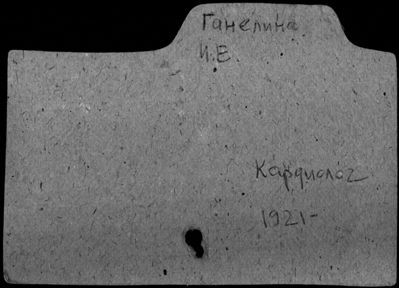 Ганелина
И.Е.
Кардиолог
1921-